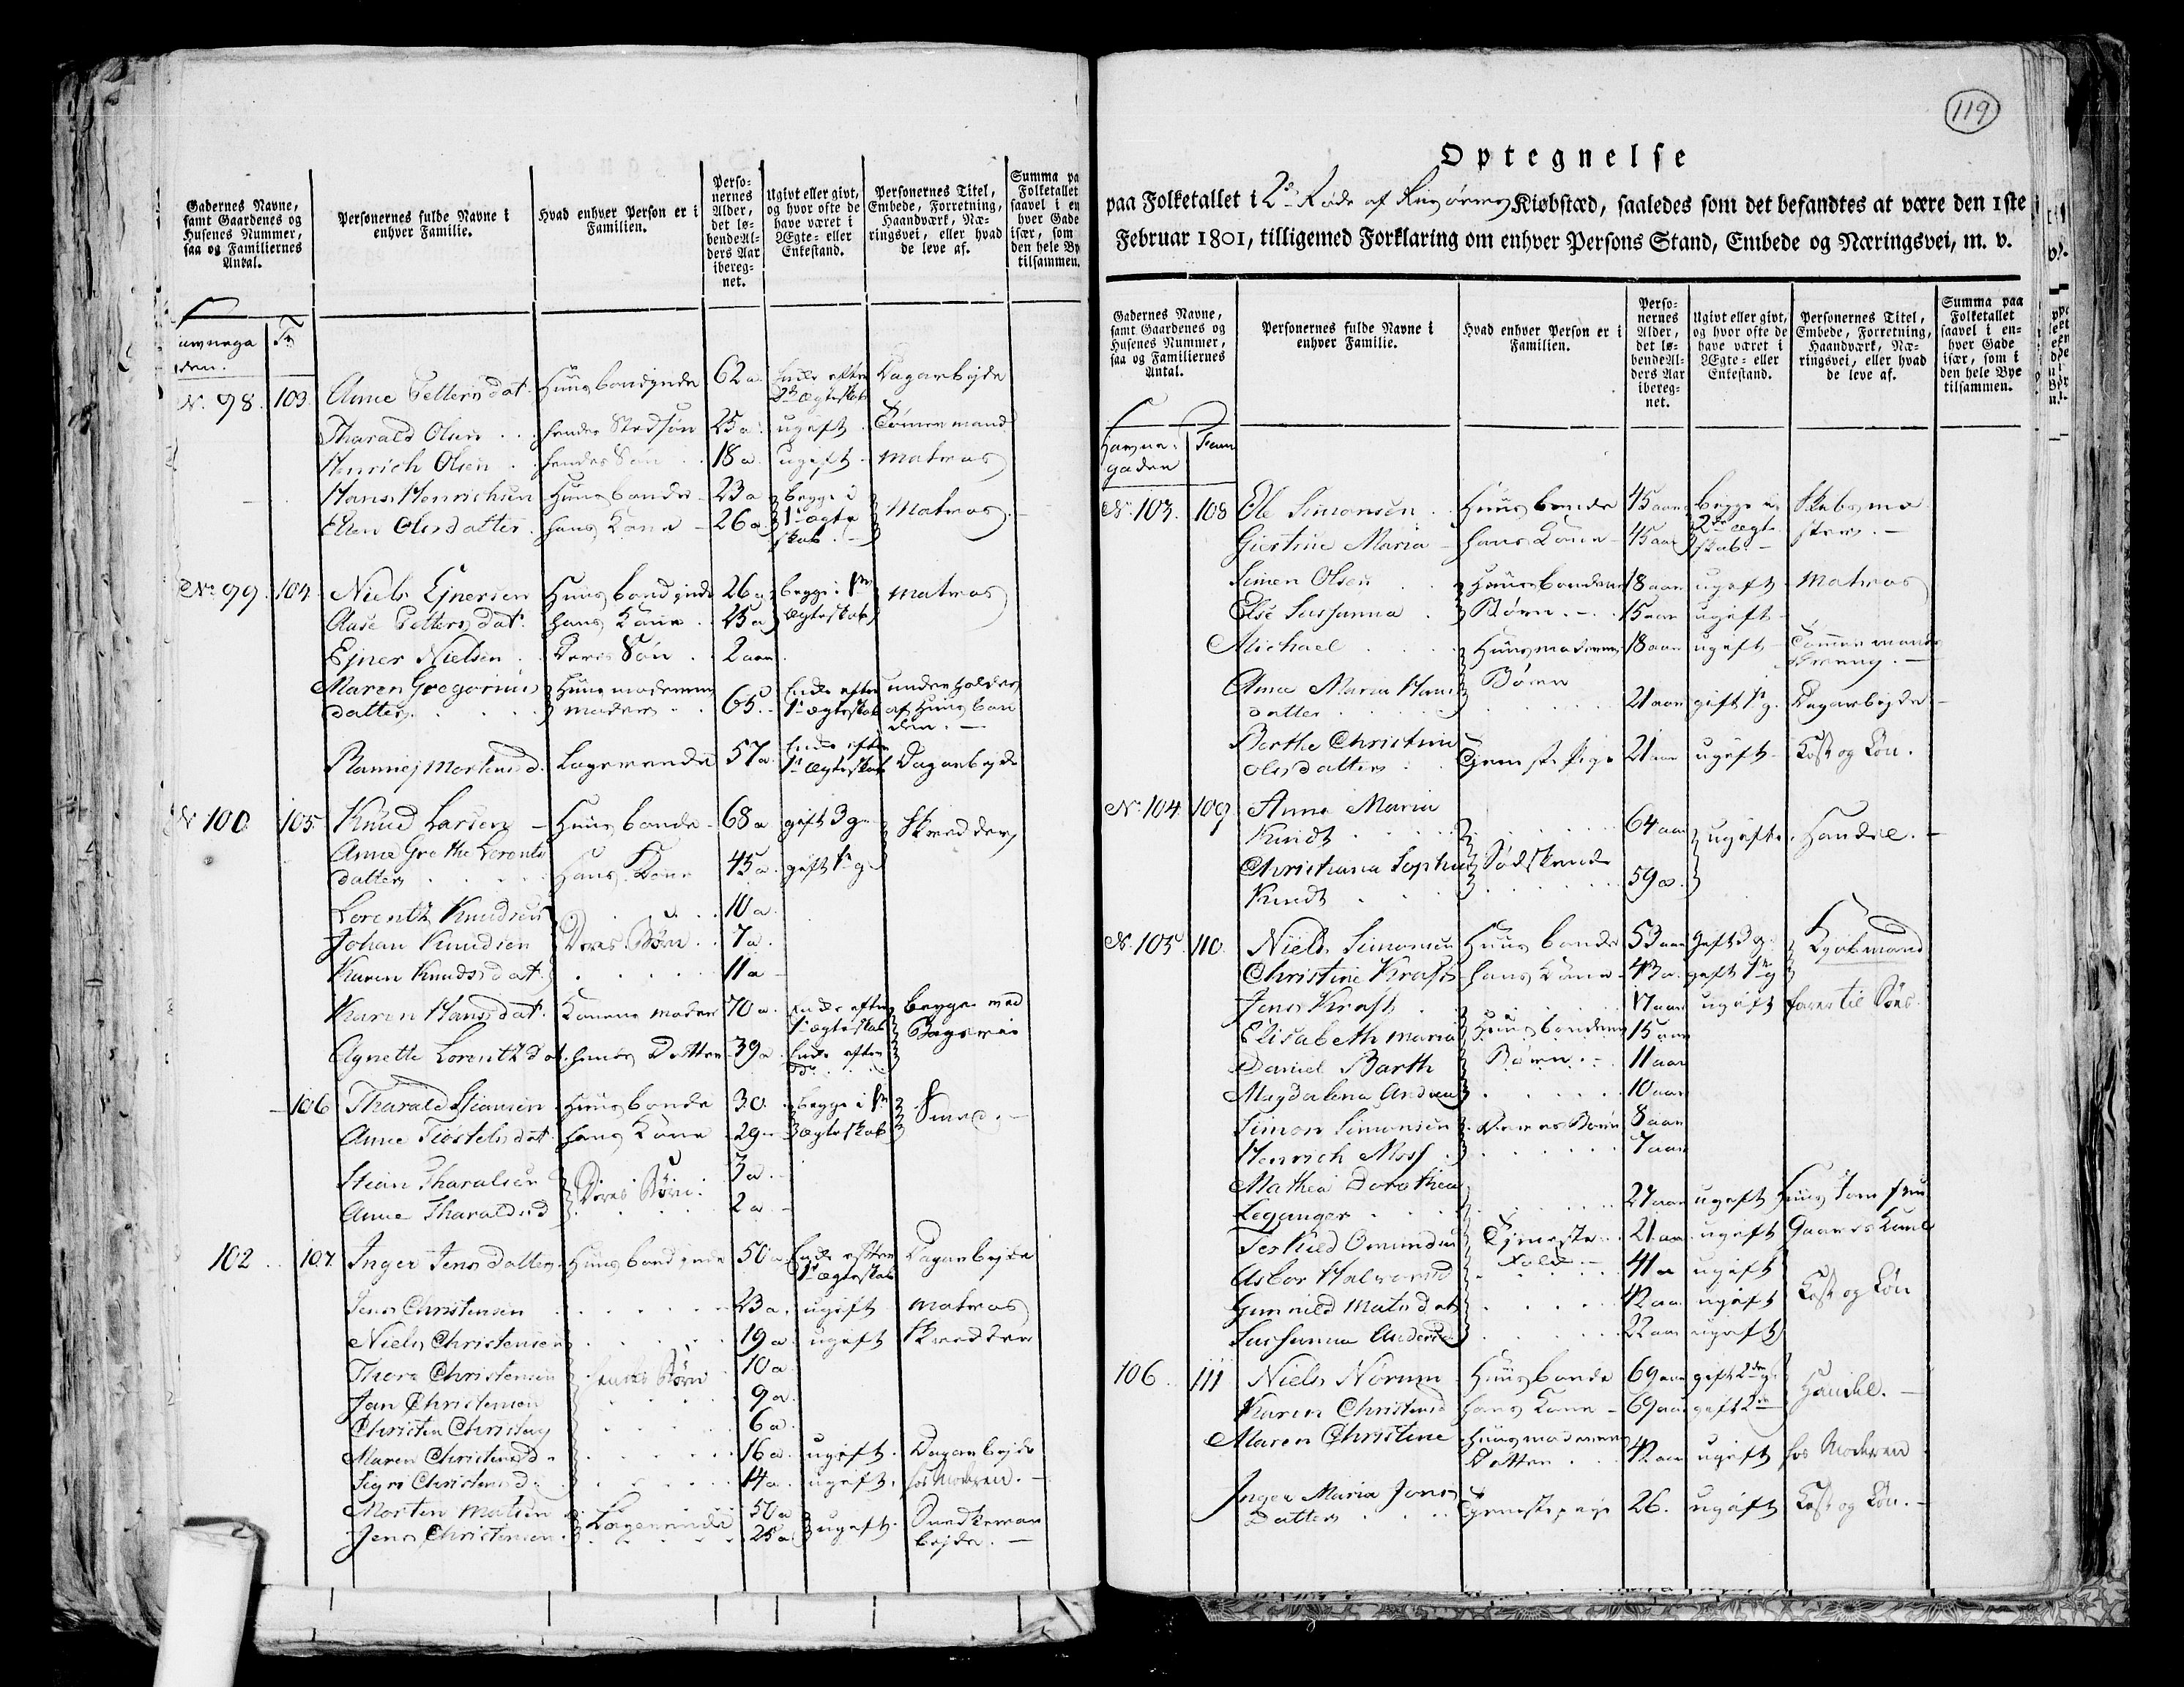 Gadernes Navne,
samt Gaardenes og
Husenes Nummer,
saa og Familiernes
Antal.
Personernes fulde Navne i
enhver Familie.
Hvad enhver Person er i
Familien.
Perso-
nernes
Alder,
det lø-
bende Al-
ders Aar
ibereg-
net.
Ugivt eller givt,
og hvor ofte de
have været i
Ægte- eller
Enkestand.
Personernes Titel,
Embede, Forretning,
Haandværk, Næ-
ringsvei, eller hvad
de leve af.
Summa pa
Folketallet
saavel i en
hver Gade
især, som
den hele By
tilsammen.
No 98. 103. Anne Petters dat. Huusbondinde 62 a. Enke efter Dagarbejde
2det Ægteskab
Tharald Olsen . . hendes Stedsøn 25 a. ugift Tømmermand
Henrich Olsen . hendes Søn . . 18 a. ugift Matros
Hans Henrichsen Huusbonde 23 a begge i Matros
Elen Olisdatter . hans Kone 26 a 1te Ægte
skab.
No 99. 104 Niels Ejnersen Huusbondinde 26 a begge i 1te Matros
Aase Petters dat. hans Kone 25 a Ægteskab
Ejner Nielsen . Deres Søn . . 2 aar
Maren Gregorius Huusmoderens 65. Enke efter underholdes
datter moder 1te Ægteskab af Huusbon
den.
Mortens d. Logerende 57 a. Enke efter Dagarbejde
1te Ægteskab
No 100. 105. Knud Larsen Huusbonde 68 a gift 3 g Skredder
Anne Grethe Lorents
datter hans Kone 45 a. gift 1te g
Lorentz Knudsen 10 a.
Johan Knudsen Deres Børn . . 7 a.
Karen Knuds dat. 11 a
Karen Hans dat. Konens moder 70 a. Enke efter begge ved
1te Ægteskab
Agnette Lorentz dat. hendes Datter 39 a. Enke efter
do
106 Tharald Stiansen Huusbonde 30. begge i 1te Smed.
Anne Kiøstels dat. hans Kone 29 Ægteskab
Stian Tharalsen Deres Børn. 3 a.
Anne Tharalds d 2 a
102 . . 107. Inger Jensdatter Huusbondinde 50 a Enke efter Dagarbejde
1te Ægteskab
Jens Christensen 23 a. ugift Matros
Niels Christensen 19 a ugift Skredder
Thore Christensen hendes Børn 10 a
Jan Christensen 9 a.
Christen Christens 6 a.
Maren Christens d 16 a. ugift. Dagarbejde
Sigri Christens d 14 a. ugift. hos Moderen.
Morten Matsen Logerende 50 a ugift.
Jens Christensen 25 a bejde.
119
Optegnelse
paa Folketallet i 2de Rode af Riisøers Kiøbstæd, saaledes som det befandtes at være den 1ste
Februar 1801, tilligemed Forklaring om enhver Persons Stand, Embede og Næringsvei, m. v.
Gadernes Navne,
samt Gaardenes og
Husenes Nummer,
saa og Familiernes
Antal.
Personernes fulde Navne i
enhver Familie.
Hvad enhver Person er i
Familien.
Perso-
nernes
Alder,
det lø-
bende Al-
ders Aar
ibereg-
net.
Ugivt eller givt,
og hvor ofte de
have været i
Ægte- eller
Enkestand.
Personernes Titel,
Embede, Forretning,
Haandværk, Næ-
ringsvei, eller hvad
de leve af.
Summa paa
Folketallet
saavel i en-
hver Gade
især, som i
den hele Bye
tilsammen.
Havne- Fam
gaden
No. 103. 108 Ole Simonsen . Huusbonde 45 aar begge i
Giertine Maria hans Kone 45 aar 2de Ægte
skab.
Simen Olsen Huusbondens 18 aar ugift Matros
Else Sussanna . Børn. 15 aar ugift
Michael Huusmoderens 18 aar ugift Tømmermands
dreng.
Anne Maria Hans Børn
datter 21 aar gift 1te g. Dagarbejde
Berthe Christine
Olisdatter Tjeneste Pige 21 aar ugift Kost og Løn.
No. 104. 109 Anne Maria
Kindt 64 aar ugifte. Handel.
Christiana Sophia Sødskende
Kindt 59 a.
No. 105. 110. Niels Simonsen Huusbonde 53 aar gift 3 g. Kjøbmand
Christine Kraft hans Kone 43 a. gift 1te g
Jens Kraft 17 aar ugift farer til Søes.
Elisabeth Maria Huusbondens 15 aar
Daniel Barth Børn. 11 aar
Magdalena Andrea 10 aar
Simon Simonsen Deres Børn 8 aar
Henrich Moss 7 aar
Mathea Dorothea
Leganger 27 aar ugift Huus Jomfrue
Terkild Omunds Tjeneste 21 aar ugift Gaards Karl
Asbor Halvors d Folk 41 a ugift
Gunnild Mats dat 42 aa. ugift Kost og Løn
Sussanna Anders d 22 aar ugift
106 . 111 Niels Norum Huusbonde 69 aar gift 2den g Handel.
Karen Christens d hans Kone 69 aar gift 2den
Maren Christine Huusmoderens
Datter 42 aar ugift hos Moderen
Inger Maria Jens
Datter Tjenestepige 26. ugift Kost og Løn.